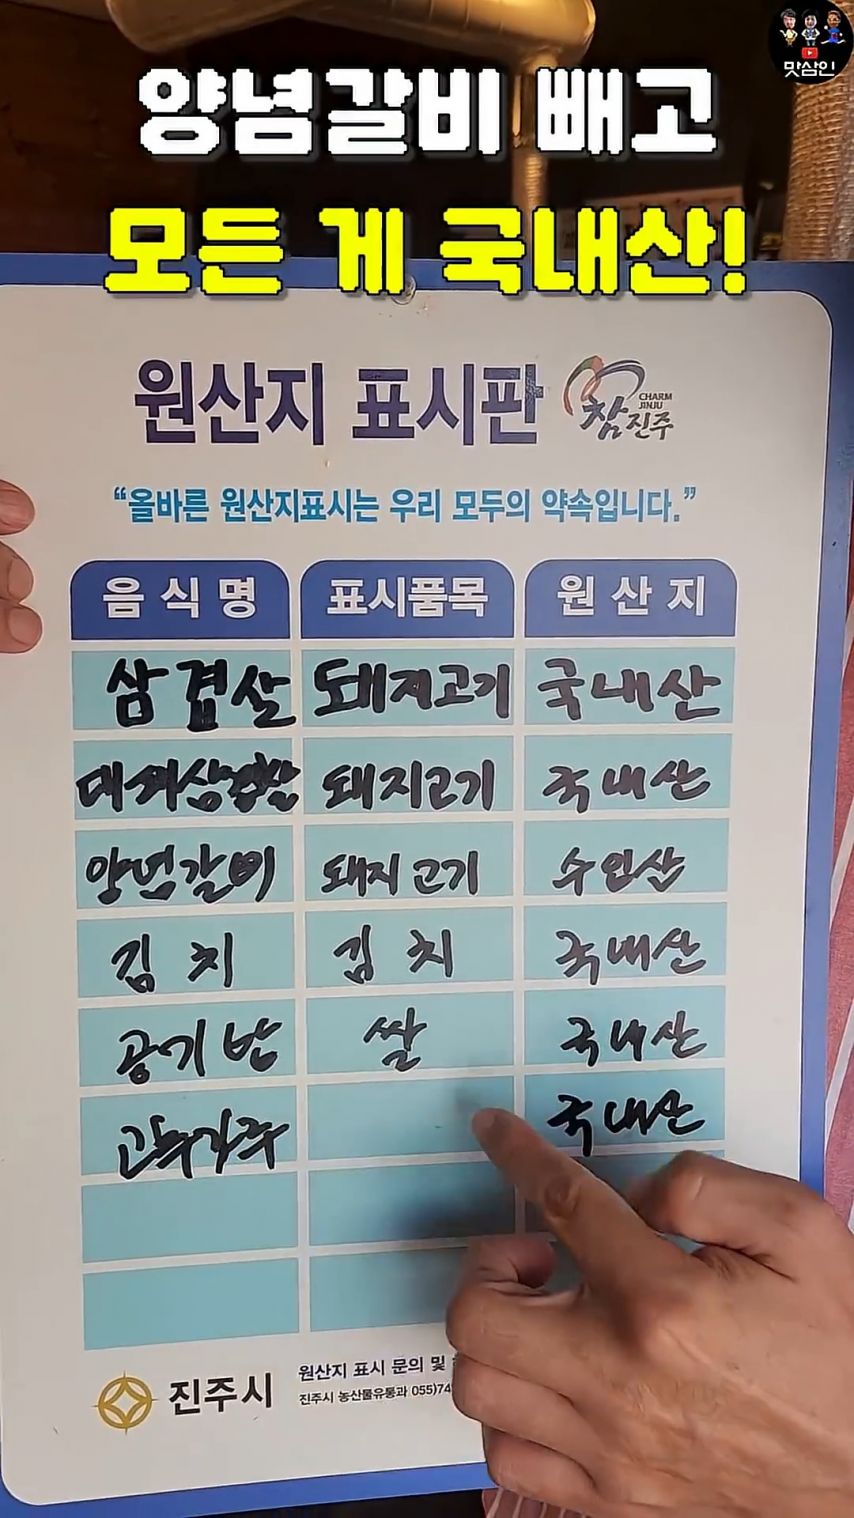 맛삼인
양념갈비 빼고
모든 게 국내산!
원산지 표시판
CHARM
JINJU
참진주
“올바른 원산지표시는 우리 모두의 약속입니다.”
음식명 표시품목 원산지
삼겹살 돼지고기 국내산
대패삼겹살 돼지고기 국내산
양념갈비 돼지고기 수입산
김치 김치 국내산
공기밥 쌀 국내산
고추가루 국내산
진주시
원산지 표시 문의 및
진주시 농산물유통과 055)74